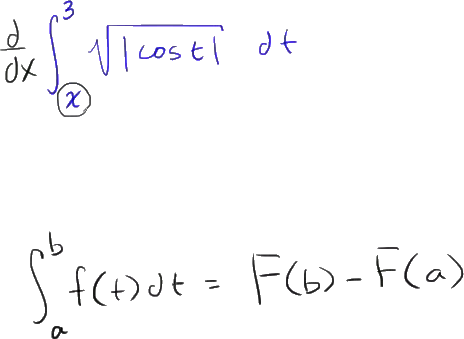 d/dx ∫_x^3 √|cos t| dt
∫_a^b f(t) dt = F(b) - F(a)